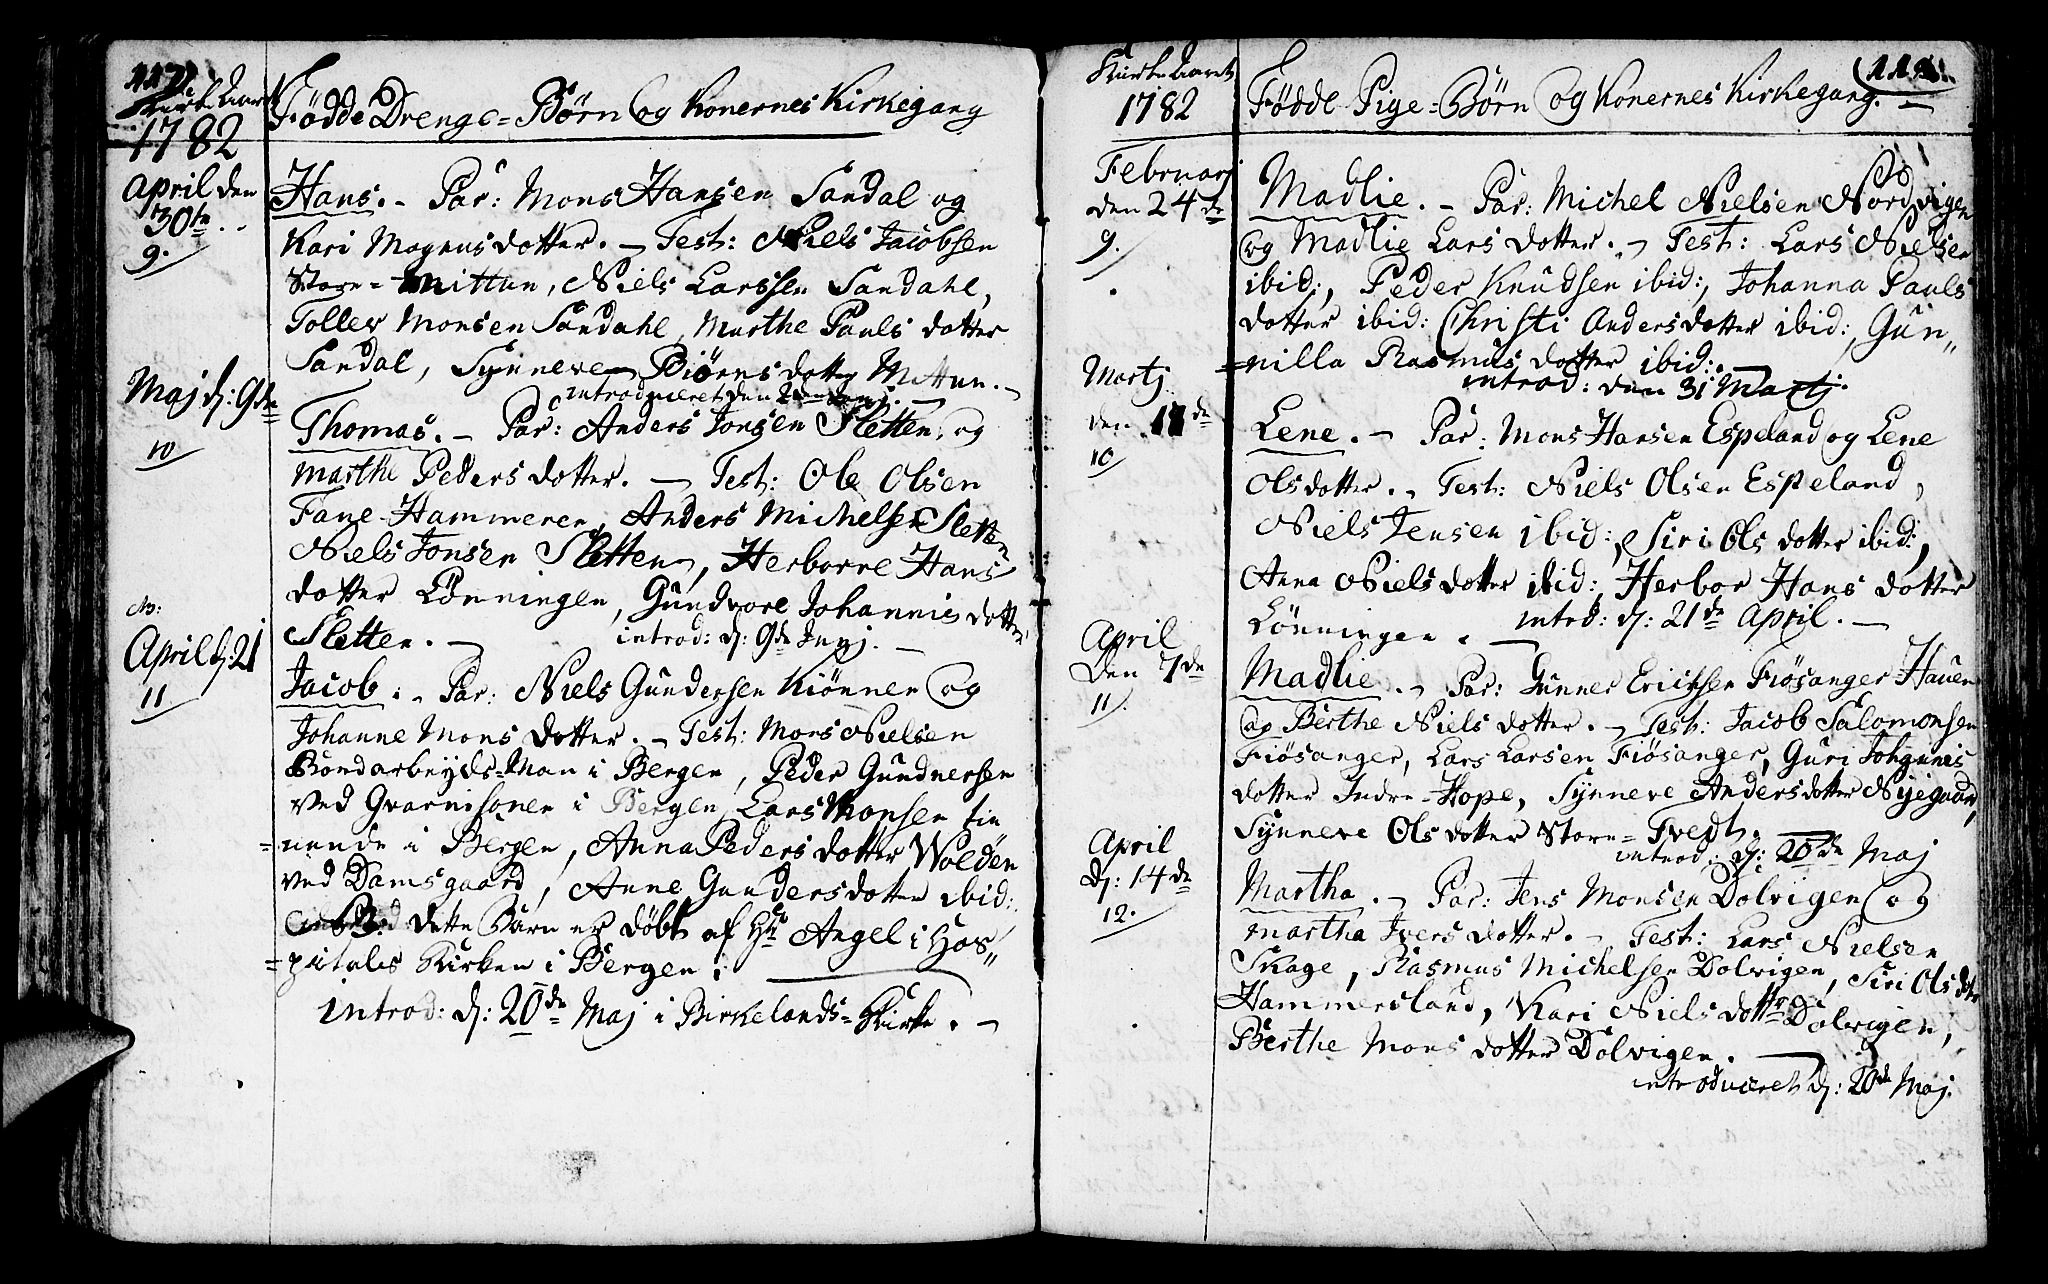 117.
Kirke Aaret
1782
Fødde Drenge=Børn og Konernes Kirkegang
April den
30te
9.
Hans. – Par: Mons Hansen Sandal og
Kari Magnusdotter. – Test: Niels Jacobsen
Store=Mittun, Niels Larssen Sandahl,
Tollev Monsen Sandahl, Marthe Pauls dotter
Sandal, Synneve Biörns dotter Mittun. –
introduceret den
Maj d: 9de
10
Thomas. – Par: Anders Jonsen Sletten og
Marthe Peders dotter. – Test: Ole Olsen
Fane-Hammeren, Anders Michelsen Sletten
Niels Jonsen Sletten, Herborre Hans
dotter Lönningen, Gundvore Johannis dotter
Sletten. – introd: d: 9de Junj. –
NB:
April d: 21
11
Jacob. – Par: Niels Gundersen Kiönnen og
Johanne Mons dotter. – Test: Mons Nielsen
Bondarbeyds=Man i Bergen, Peder Gundnersen
ved Gvarnisonen i Bergen, Lars Monsen tie
=nende i Bergen, Anna Peders dotter Wolden
ved Damsgaard, Anne Gundersdotter ibid:
NB: dette Barn er døbt af Hr Angel i Hos"
=pitals Kirken i Bergen:
introd: d: 20de Maj i Birkelands=Kirke. –
Kirke Aaret
1782
Fødde Pige=Børn og Konernes Kirkegang. –
Februarj
den 24de
9.
Madlie. – Par: Michel Nielsen Nordvigen
og Madlie Lars dotter. – Test: Lars Nielsen
ibid:, Peder Knudsen ibid:, Johanna Pauls
dotter ibid: Christi Andersdotter ibid:, Gun"
=nilla Rasmus dotter ibid:. –
introd: den 31 Martj.
Martj
den
10
Lene. – Par: Mons Hansen Espeland og Lene
Olsdotter. – Test: Niels Olsen Espeland,
Niels Jensen ibid:, Siri Ols dotter ibid:,
Anna Niels dotter ibid:, Herbor Hans dotter
Lönningen. – introd: d: 21de April. –
April
Den 7de
11.
Madlie. – Par: Gunner Erichsen Fiøsanger Hauen
og Berthe Niels dotter. – Test: Jacob Salomonsen
Fiösanger, Lars Larsen Fiösanger, Guri Johannis
dotter Indre-Hope, Synneve Andersdotter Nyegaard,
Synneve Ols dotter Store=Tvedt.
introd: d: 20de Maj
April
d: 14de
12.
Martha. – Par: Jens Monsen Dolvigen og
Martha Ivers dotter. – Test: Lars Nielsen
Skage, Rasmus Michelsen Dolvigen, Siri Ols dtr
Hammersland, Kari Niels dotter Dolvigen,
Berthe Mons dotter Dolvigen. –
introduceret d: 20de Maj.